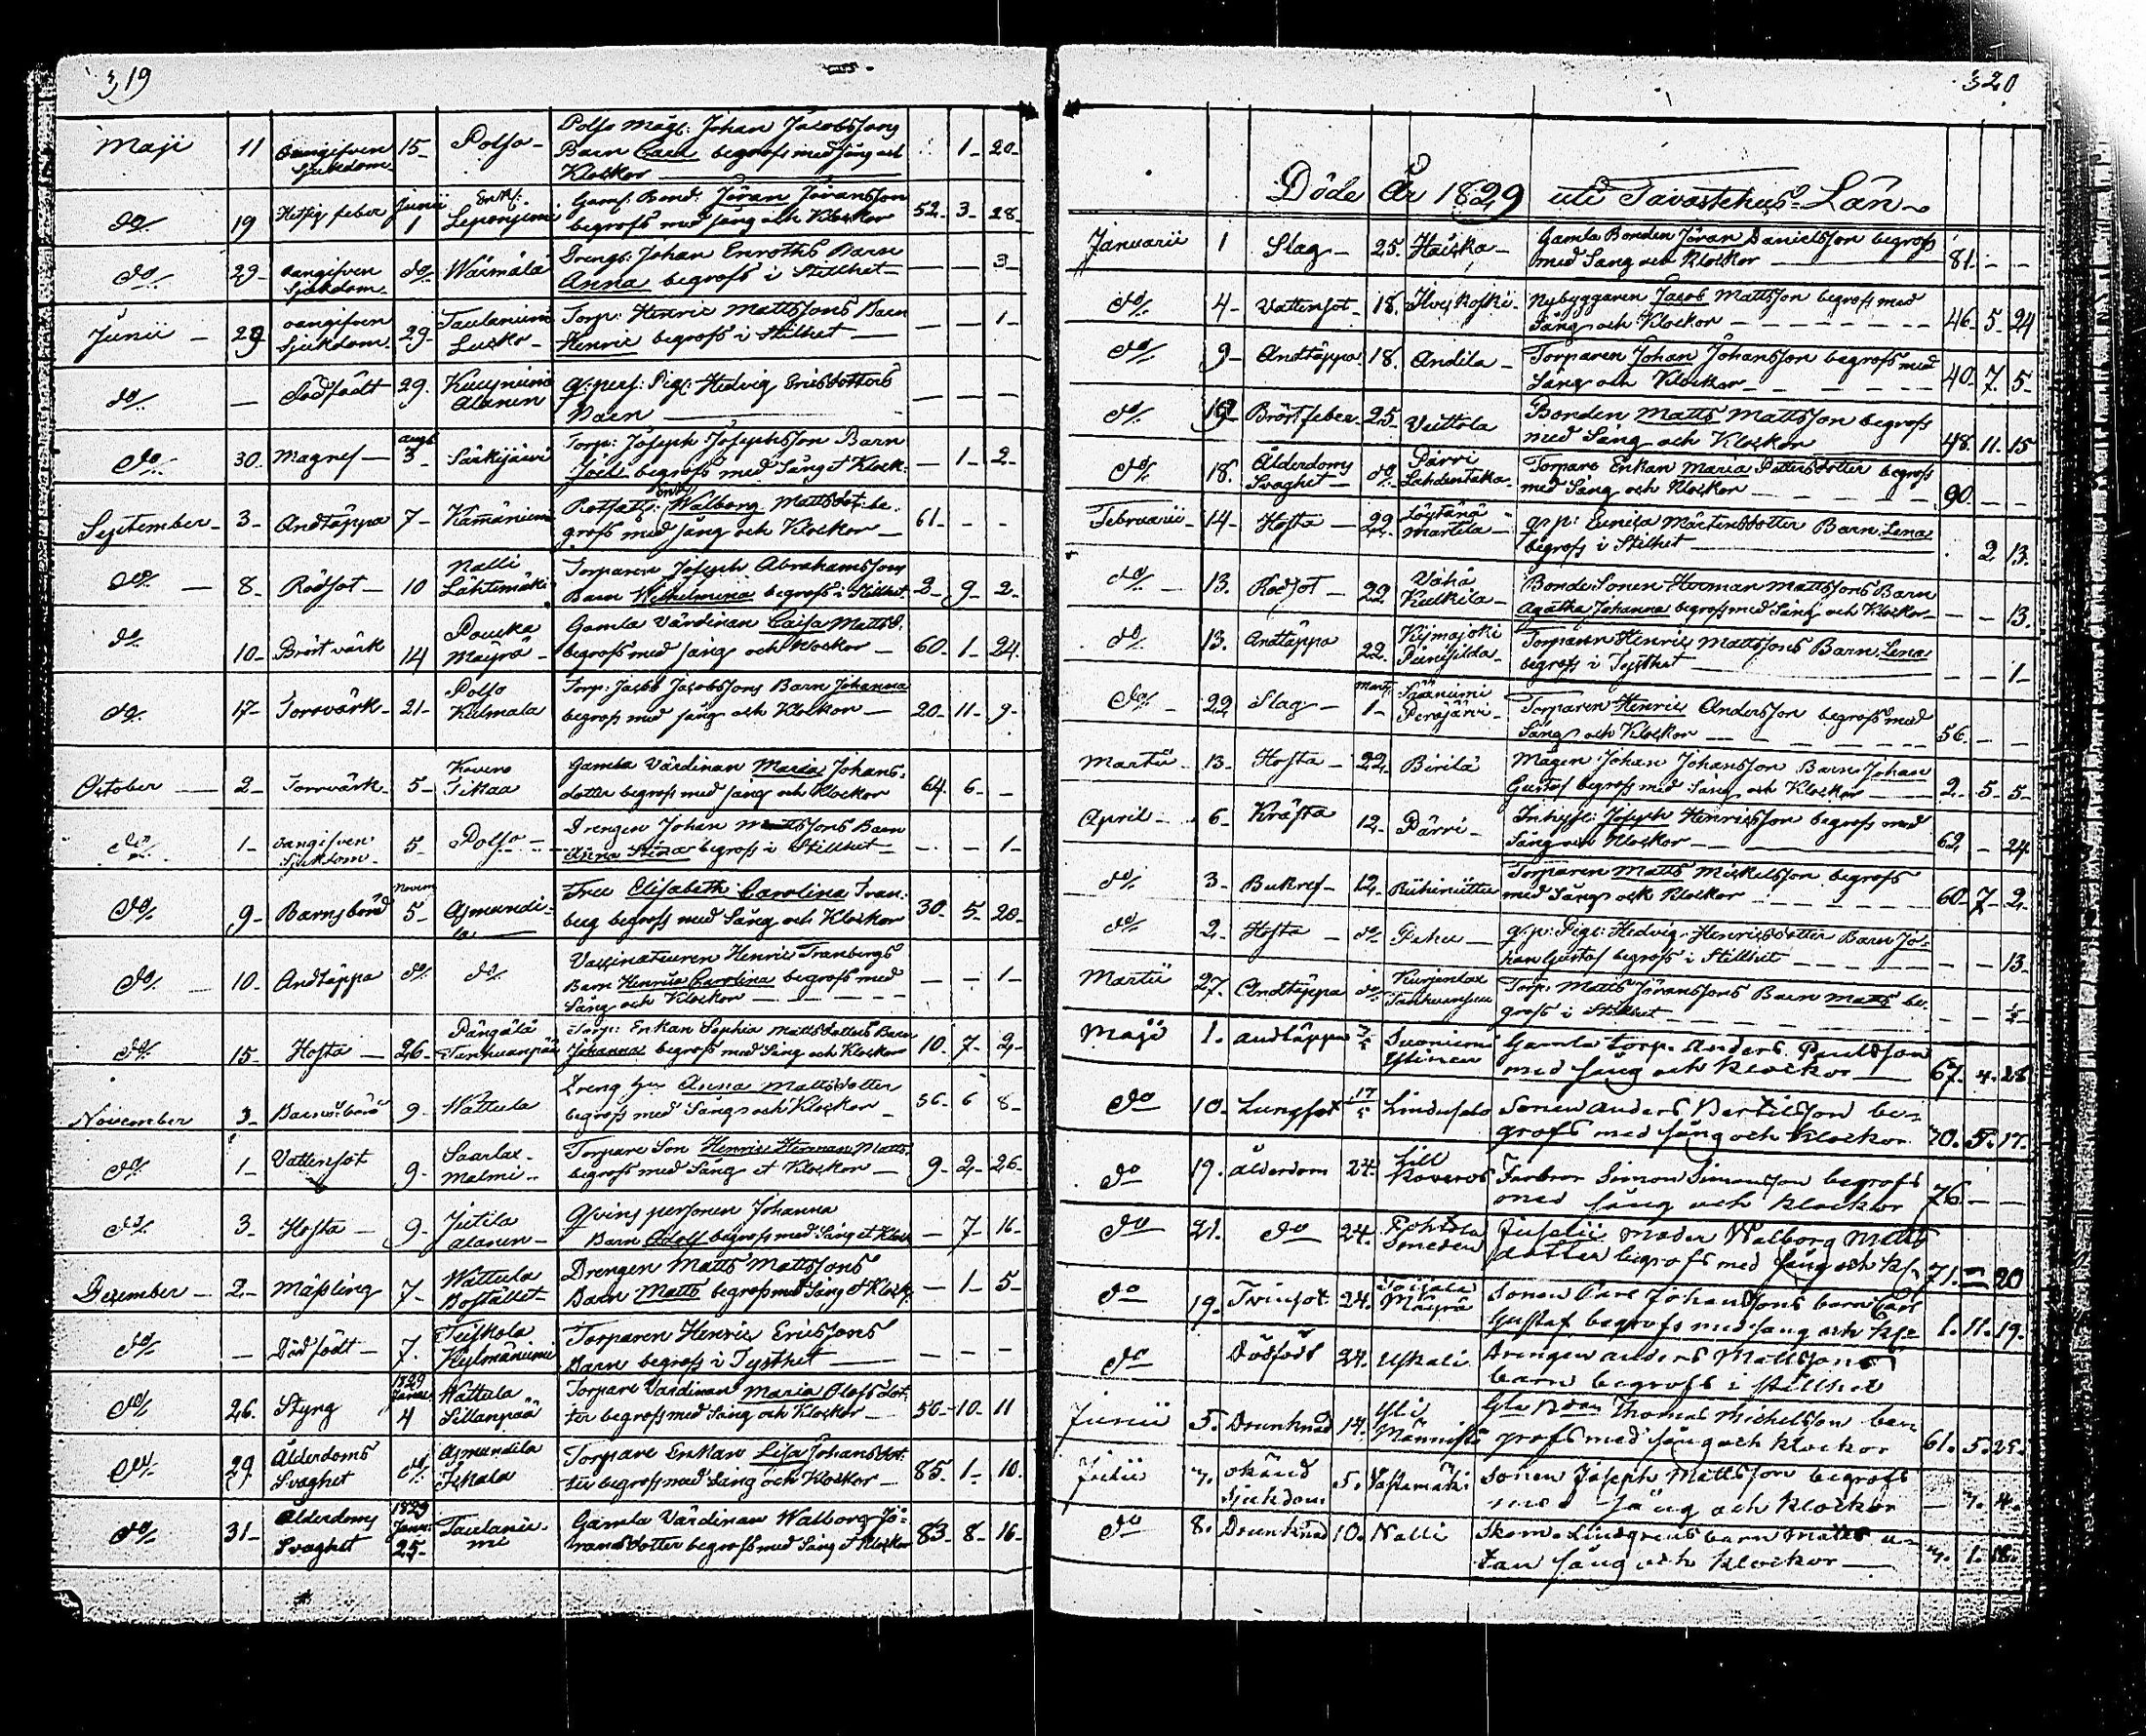 319
Maji 11 oangifven 15- Polso- Polso Mågs: Johan Jacobssons 1- 20-
Sjukdom Barn begrofs med sång och
Klockor
do 19 Hetsig feber Junii 1 Gaml. Bond: Jöran Jöransson 52- 3- 28-
begrofs med sång och Klockor
do 29- oangifven do Wärmälä Drengs: Johan Enroths Barn 3-
Sjukdom Anna begrofs i Stillhet-
Junii 29 oangifven 29- Taulaniemi Torp: Henric Mattssons Barn 1-
Sjukdom Henric begrofs i Stillhet
do - Dödfödt 29. Pig: Hedvig Ericsdotters
Alanen Barn
do 30- Magref- Aug 3- Särkijärvi Torp: Joseph Josephsson Barn - 1- 2-
begrofs med Sång et Klock-
September- 3- Andtäppa 7- Enk Walborg Mattsdot: be- 61- - -
grofs med sång och Klockor-
do 8- Rödsot- 10 Nalli Torparen Joseph Abrahamssons 2- 9- 2-
Lähtemäki Barn Wilhelmina begrofs i Stillhet
do 10- Bröst värk 14 Gamla Värdinan Caisa Mattsd: 60- 1- 24.
Mäyrä- begrofs med sång och Klockor-
do 17- Torrvärk- 21- Polso Torp: Jacob Jacobssons Barn Johanna 20- 11- 9-
Kulmala begrofs med sång och Klockor-
October 2- Torrvärk- 5- Kovero Gamla Värdinan Maria Johans- 64. 6- -
Tikaa dotter begrofs med sång och Klockor
do 1- oangifven 5- Polso- Drengen Johan Mattssons Barn - - 1-
Sjukdom- Anna Stina begrofs i Stillhet
do 9- Barnsbörd Novem 5- Asmundi- Fru Elisabeth Carolina Tran- 30- 5- 20-
la berg begrofs med Sång och Klockor
do 10- Andtäppa do do Vaccinateuren Henric Tranbergs - - 1-
Barn Henrica Carolina begrofs med
Sång och Klockor
do 15- Hosta- 26- Pängälä Torp: Enkan Sophia Mattsdotters Barn 10- 7- 2-
Johanna begrofs med Sång och Klockor
November 3- Barnsbörd 9- Wattula Dreng Anna Mattsdotter 36- 6 8-
begrofs med Sång och Klockor-
do 1- Vattensot 9- Saarlax- Torpare Son Henric Herman Matts. 9- 2- 26-
Malmi- begrofs med Sång et Klockor-
do 3- Hosta- 9- Jutila Qvins personen Johanna - 7- 16-
Alanen- Barn Adolf begrofs med Sång et Klock
December- 2- Mässling 7- Wattula Drengen Matts Mattssons - 1- 5-
Bostället- Barn Matts begrofs med Sång et Klock.
do - Dödfödt- 7. Teiskola Torparen Henric Ericssons - - -
Kylmäniemi Barn begrofs i Tysthet
do 26. Styng 1829 Januar 4 Wattula Torpare Värdinan Maria Olofsdot- 50- 10- 11
Sillanpää ter begrofs med Sång och Klockor-
do 29. Ålderdoms do Asmundila Torpare Enkan Lisa Johansdot- 85- 1- 10.
Svaghet Iskala ter begrofs med Sång och Klockor-
do 31- Ålderdoms 1829 Janu: 25- Taulanie- Gamla Värdinan Walborg Jö- 83- 8- 16-
Svaghet mi ransdotter begrofs med Sång et Klockor
320
Döde År 1829 uti Tavastehus-Län
Januarii 1 Slag- 25. Gamla Bonden Jöran Danielsson begrofs 81- - -
med Sång och Klockor
do 4- Vattensot- 18. Nybyggaren Jacob Mattsson begrofs med 46- 5- 24
Sång och Klockor
do 9- Andtäppa 18. Andila- Torparen Johan Johansson begrofs med 40- 7. 5-
Sång och Klockor
do 19- Bröstfeber 25- Vuttola Bonden Matts Mattsson begrofs 48- 11. 15
med Sång och Klockor
do 18. Ålderdoms do Pärri Torpare Enkan Maria Pettersdotter begrofs 90- - -
Svaghet- Lahdentaka- med Sång och Klockor
Februarii- 14- Hosta- 22 Löytänä qs p: Eunica Mårtensdotter Barn Lena 2 13.
Marttila- begrofs i Stillhet
do 13. Rödsot- 22 Vähä Bonde Sonen Herman Mattssons Barn - - 13.
Kulkila- Agatha Johanna begrofs med Sång och Klockor-
do 13. Andtäppa 22. Kijmajoki Torparen Henric Mattssons Barn Lena - - 1-
begrofs i Tysthet
do 22 Slag- Mart: 1- Torparen Henric Andersson begrofs med 56- - -
Perajärvi- Sång och Klockor
Martii- 13- Hosta- 22. Birilä Mågen Johan Johansson Barn Johan 2- 5- 5-
Gustaf begrofs med Sång och Klockor
April- 6- Kräfta 12- Pärri- Inhys: Joseph Henricsson begrofs med 62- - 24-
Sång och Klockor
do 3- Bukref- 12- Torparen Matts Mickelsson begrofs 60- 7- 2-
med Sång och Klockor
do 2- Hosta- do qs p: Pige: Hedvig Henricsdotter Barn Jo- - - 13-
han Gustaf begrofs i Stillhet
Martii 27. Andtäppa do Torp: Matts Jöranssons Barn Matts be- - - ½
grofs i Stillhet
Maji 1. andtäppa Gamla torp. Anders Paulsson 67. 4. 28
med sång och klockor
do 10. Lungsot 17/5 Sonen Anders Bertilsson be- 70. 5. 17.
grofs med sång och klockor
do 19. ålderdom 24. Lill Farbror Simon Simonsson begrofs 76- - -
Koveros med sång och klockor
do 21. do 24. moder Walborg Matts 71. - 20
Smeden dotter begrofs med sång och kl
do 19. Tvinsot 24. Sonen Carl Johanssons barn Carl 1. 11. 19.
Mäyrä Gustaf begrofs med sång och kl
do Dödfödt 24. Uskali Drengen Anders Mattssons
barn begrofs i stillhet
Junii 5. Drunknad 14. Yli Gla Bdon Thomas Michelsson be- 61. 5. 25.
Männistö grofs med sång och klockor
Julii 7. okänd 5. Sonen Joseph Mattsson begrofs - 7. 4.
Sjukdom med sång och klockor
do 8. Drunknad 10. Nalli Skom. Lindgrens barn Matts u- 7. 1. 18.
tan sång och klockor